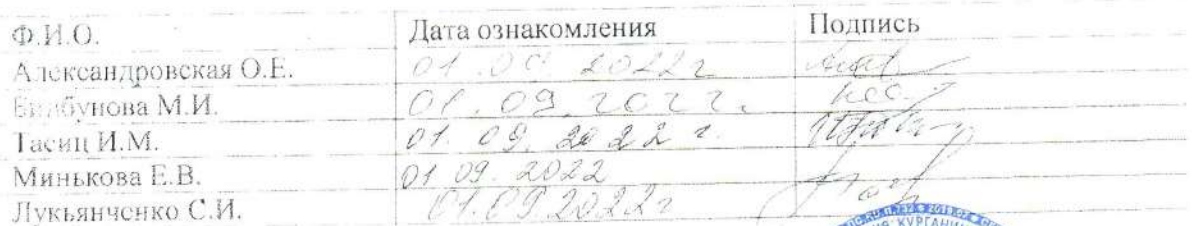 Ф.И.О. Дата ознакомления Подпись
Александровская О.Е. 01.09.2022г
М.И. 01.09.2022г.
Тасиц И.М. 01.09.2022г.
Минькова Е.В. 01 09. 2022
Лукьянченко С.И. 01.09.2022г